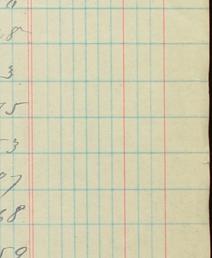 8
3
5
53
97
68
59